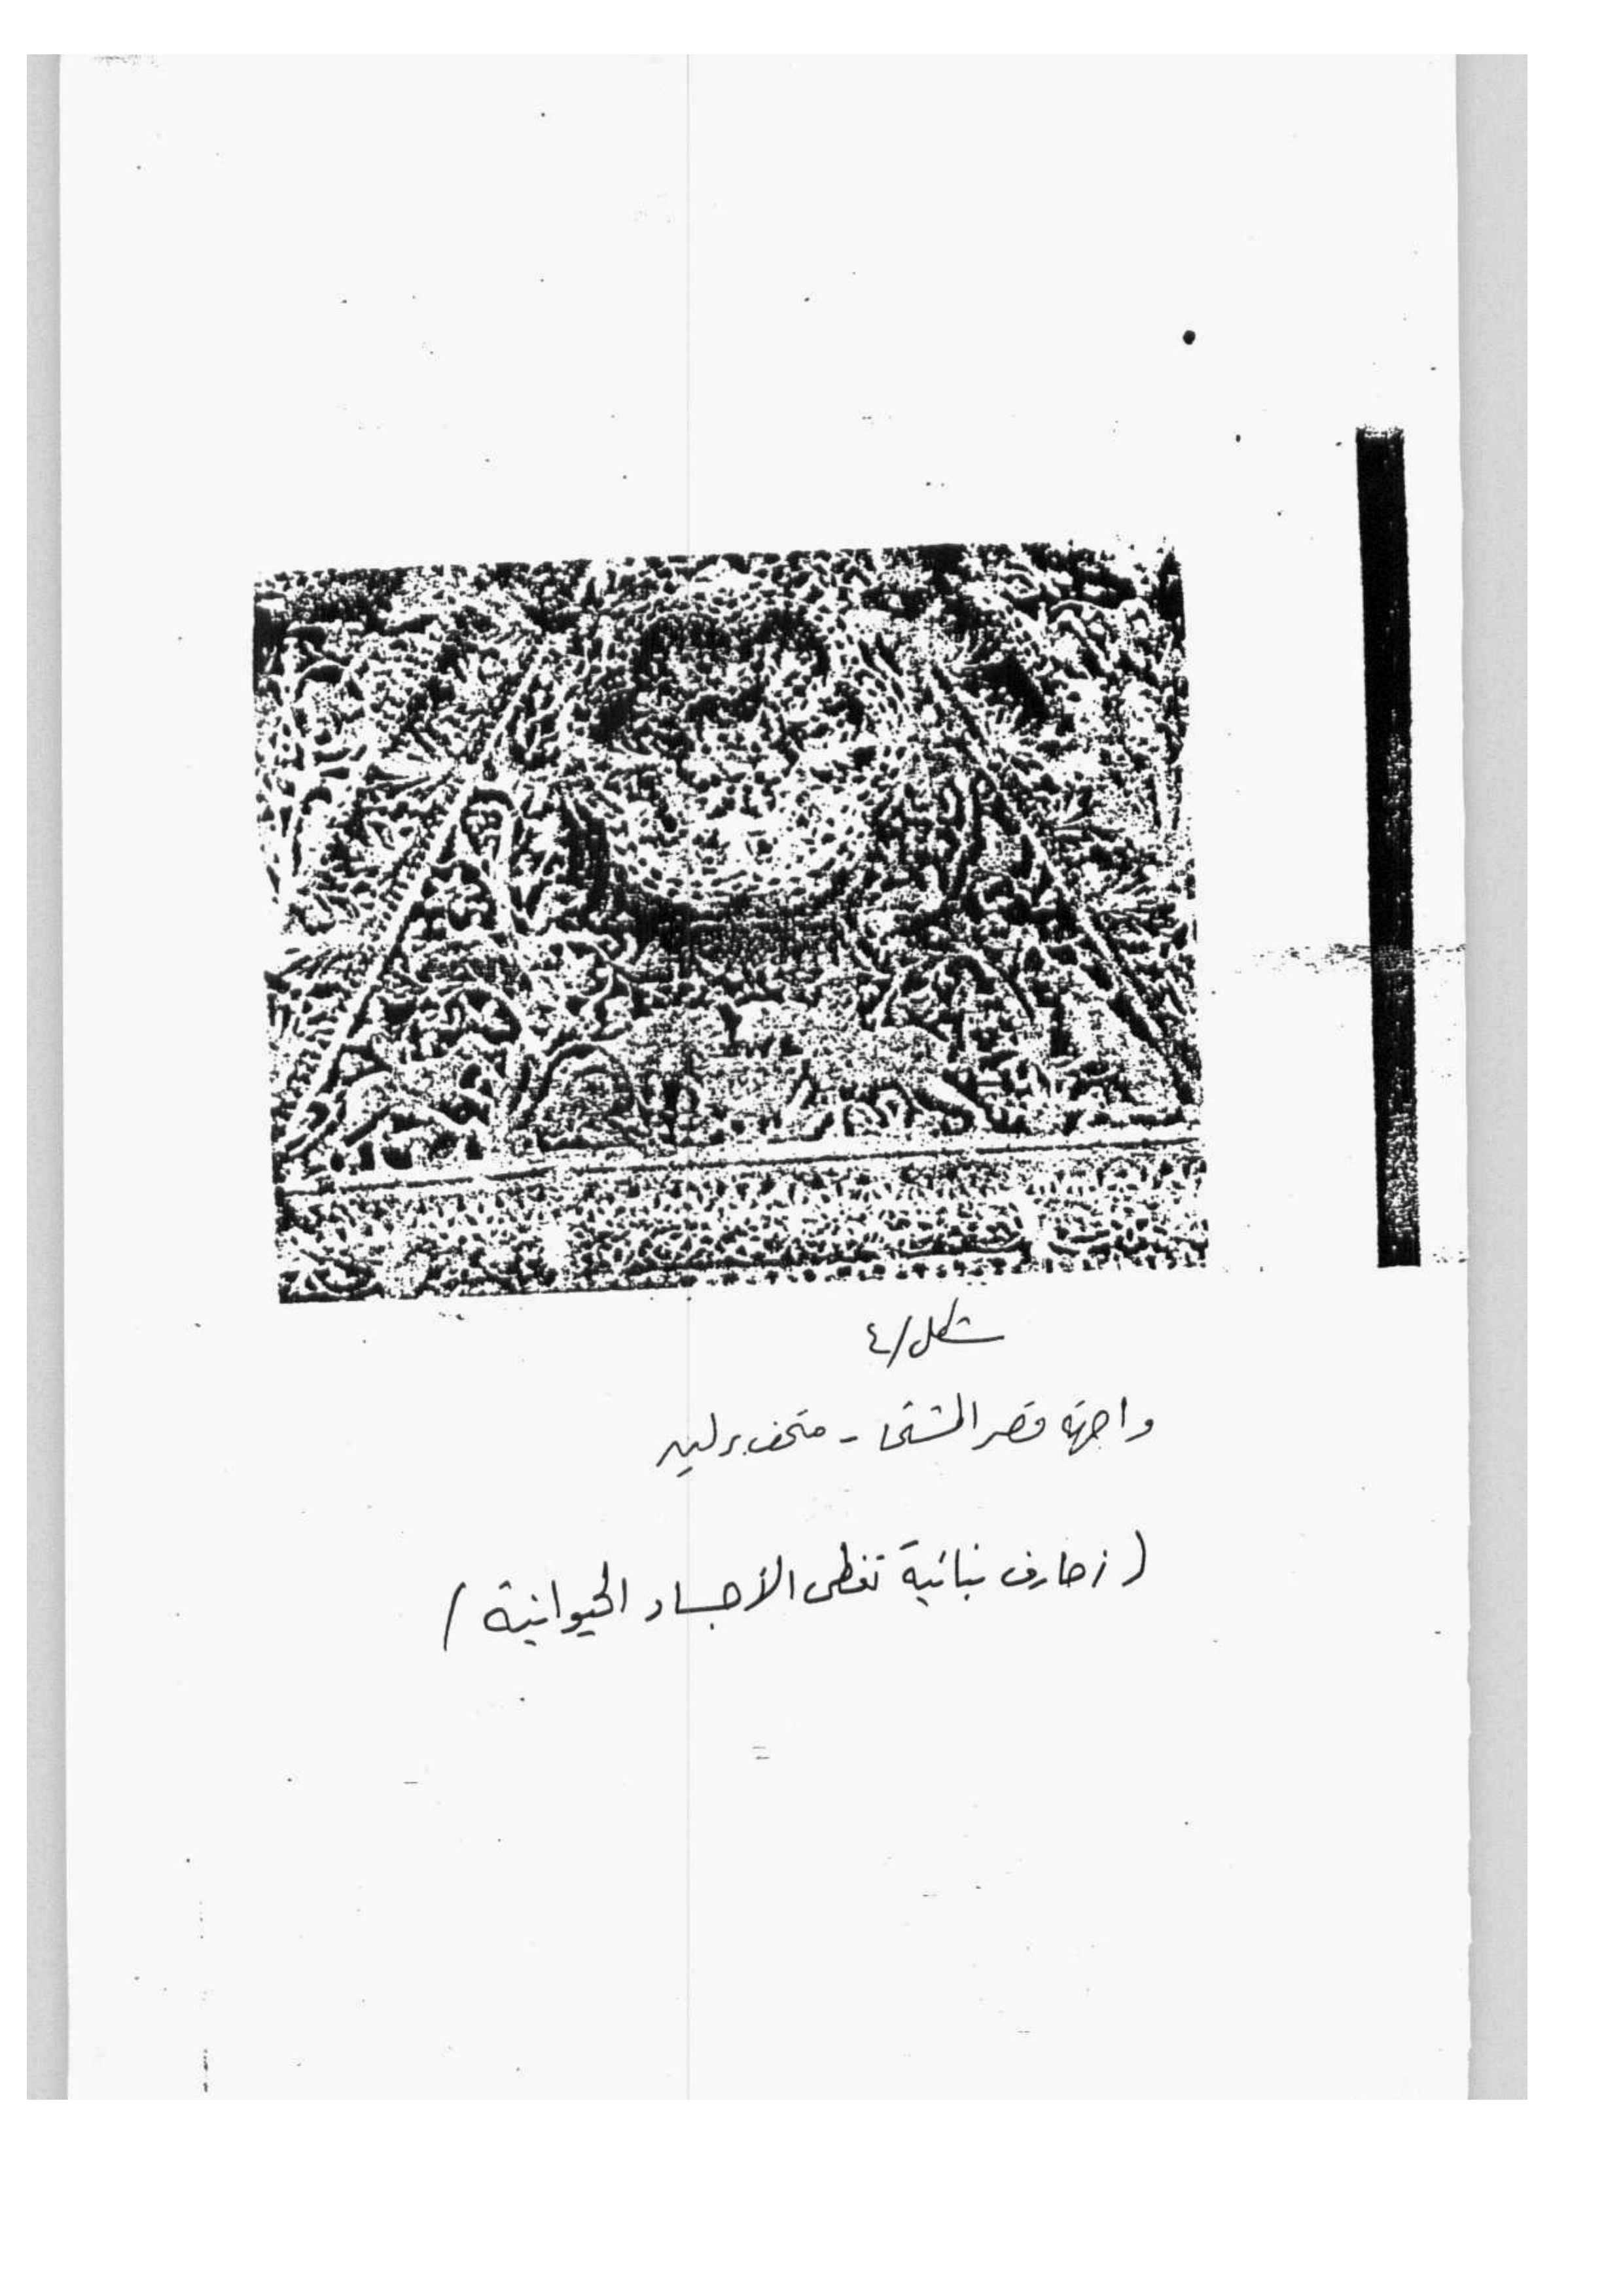 شكل/٤
واجهة قصر المشتى - متحف برلين
(زخارف نباتية تغطي الأجساد الحيوانية)